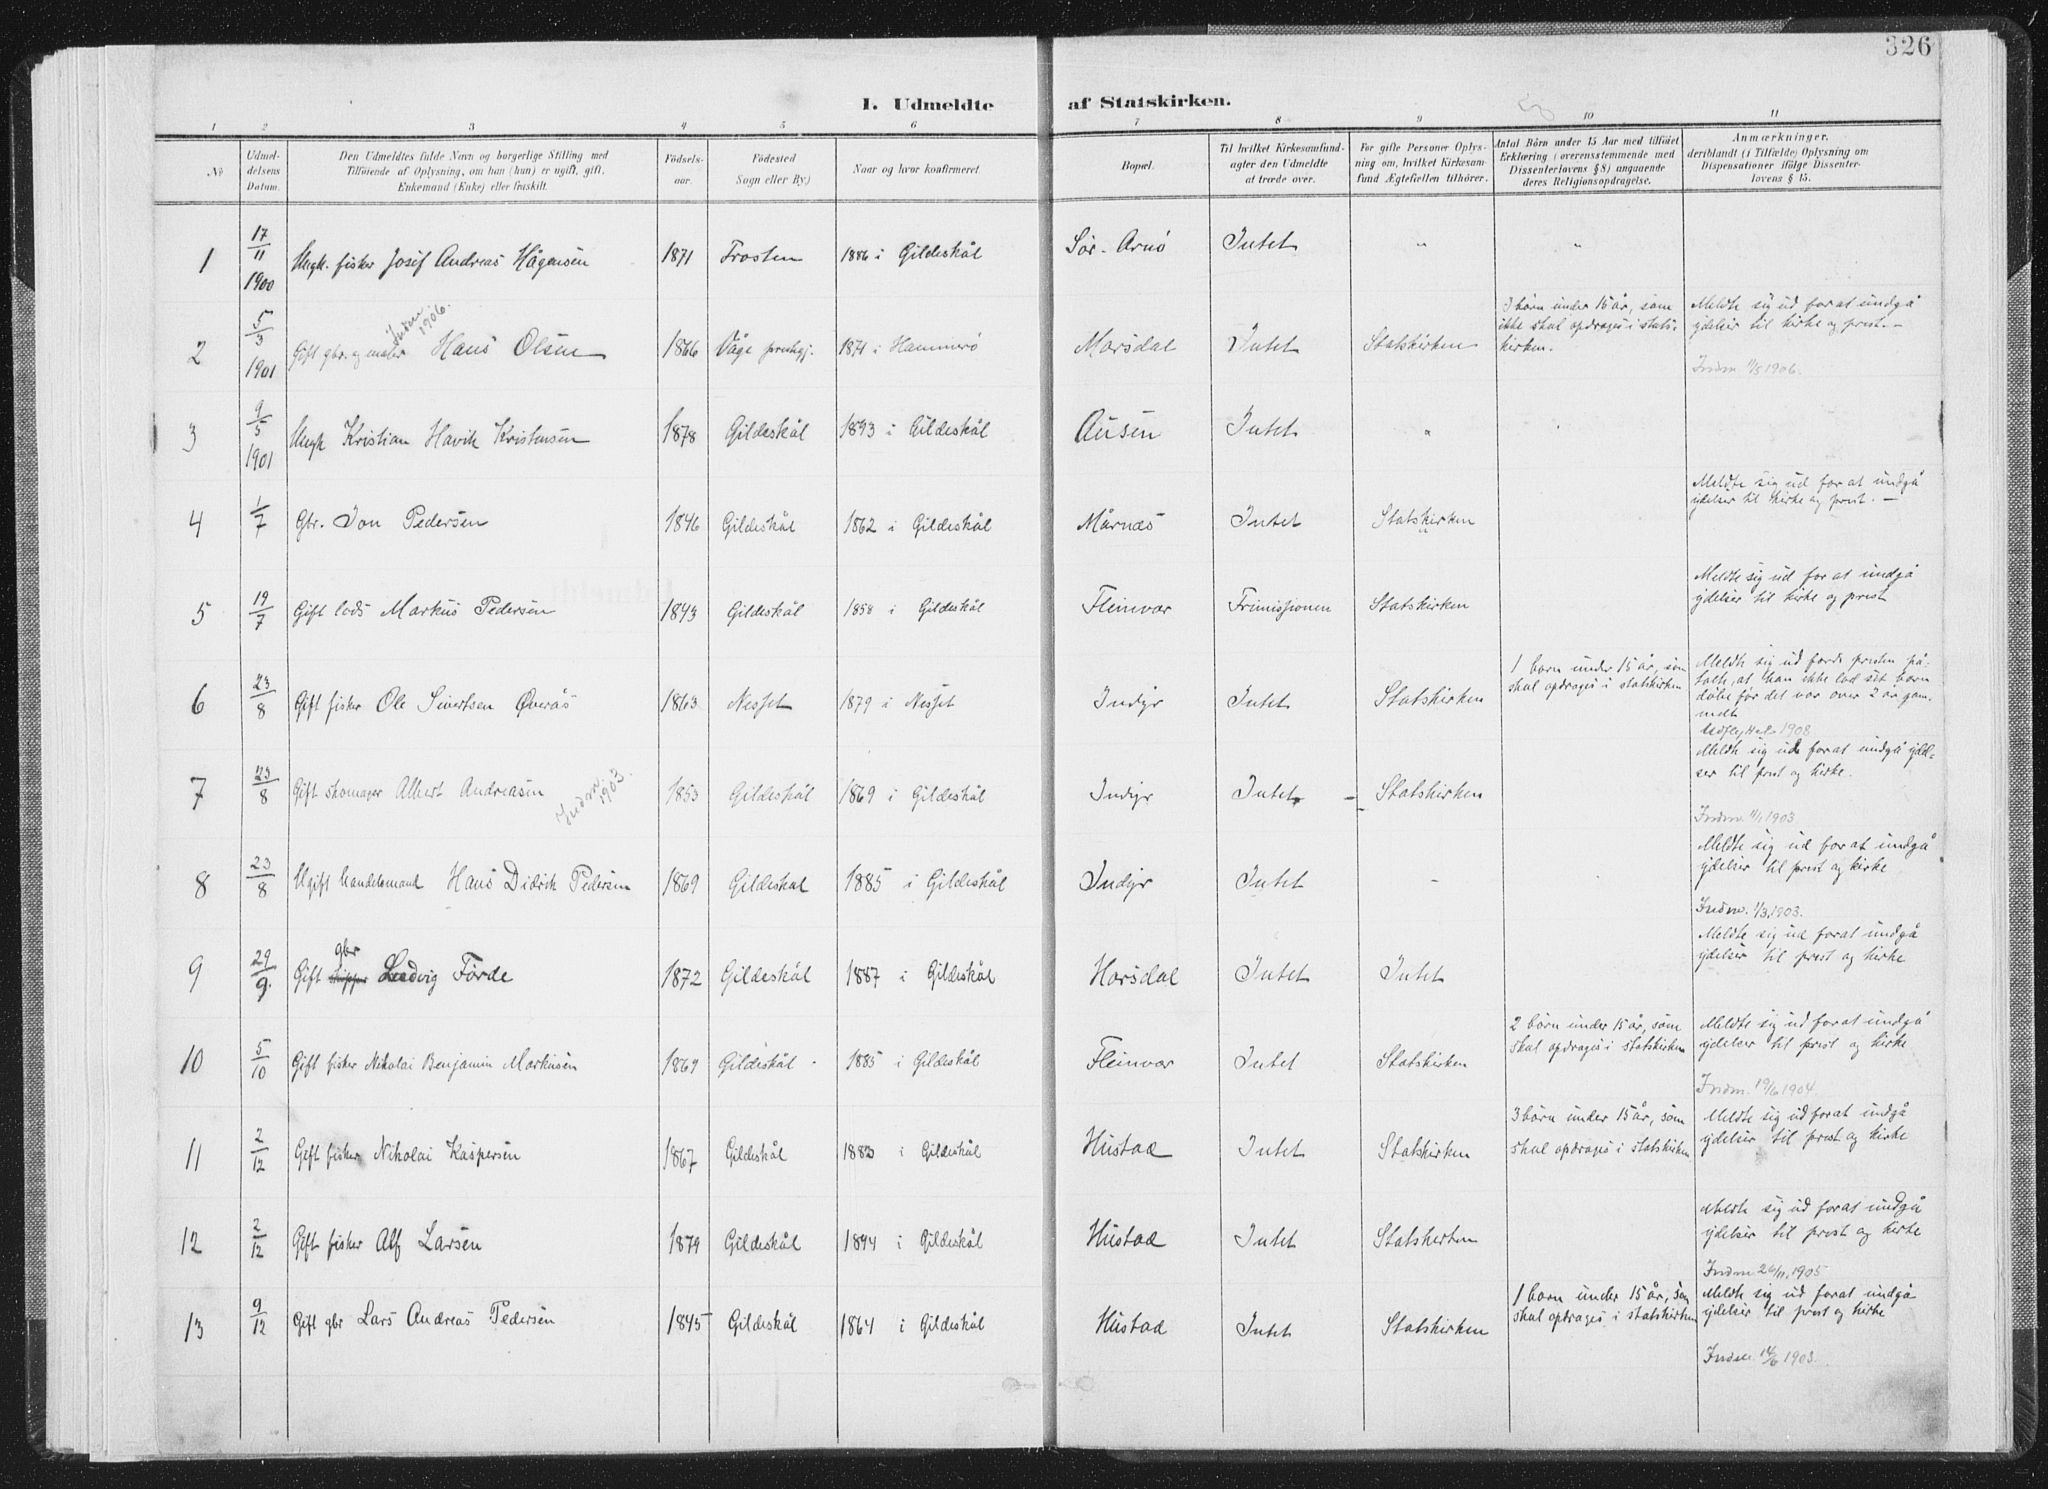 326
1. Udmeldte af Statskirken.
1 2 3 4 5 6 7 8 9 10 11
№
Udmel-
delsens
Datum.
Den Udmeldtes fulde Navn og borgerlige Stilling med
Tilföiende af Oplysning, om han (hun) er ugift, gift,
Enkemand (Enke) eller fraskilt.
Födsels-
aar.
Födested
Sogn eller By)
Naar og hvor konfirmeret
Bopæl.
Til hvilket Kirkesamfund-
agter den Udmeldte
at træde over.
For gifte Personer Oplys-
ning om, hvilket Kirkesam
fund Ægtefællen tilhörer.
Antal Börn under 15 Aar med tilföiet
Erklæring (overensstemmende med
Dissenterlovens § 8) angaaende
deres Religionsopdragelse.
Anmærkninger,
deriblandt (i Tilfælde) Oplysning om
Dispensationer ifölge Dissenter-
lovens § 15.
1 17/11 1900 Ungk. fisker Josif Andreas Hågensen 1871 Trosten 1886 i Gildeskål Sör-Arnö Intet " "
2 5/3 1901 Gift gbr. og maler Hans Olsen 1856 Våge prestgj. 1871 i Hammerö Morsdal Intet Statskirken
Indm 1906.
3 börn under 15 år, som
ikke skal opdrages i stats-
kirken.
Meldte sig ud for at undgå
ydelser til kirke og prest.-
Indm 1/5 1906.
3 9/5 1901 Ungk Kristian Havik Kristensen 1878 Gildeskål 1893 i Gildeskål Ausen Intet "
4 1/7 Gbr. Jon Pedersen 1846 Gildeskål 1862 i Gildeskål Mårnæs Intet Statskirken
Meldte sig ud for at undgå
ydelser til kirke og prest. -
5 19/7 Gift lods Markus Pedersen 1843 Gildeskål 1858 i Gildeskål Fleinvær Frimissionen Statskirken
Meldte sig ud for at undgå
ydelser til kirke og prest
6 23/8 Gift fisker Ole Sivertsen Øverås 1863 Nesset 1879 i Nesset Indyr Intet Statskirken
1 barn under 15 år, som
skal opdrages i statskirken
Meldte sig ud fordi presten på-
talte, at han ikke lod sit barn
döbe før det var over 2 år gam-
melt
Udflyttet 1908
7 23/8 Gift skomager Albert Andreasen 1853 Gildeskål 1869 i Gildeskål Indyr Intet - Statskirken
Indm. 1903.
Meldte sig ud for at undgå ydel-
ser til prest og kirke.
Indm. 1/1 1903
8 23/8 Ugift handelsmand Hans Didrik Pedersen 1869 Gildeskål 1885 i Gildeskål Indyr Intet -
Meldte sig ud for at undgå
ydelser til prest og kirke
Indm. 1/3.1903.
9 29/9. Gift gbr Ludvig Förde 1872 Gildeskål 1887 i Gildeskål Horsdal Intet Intet
Meldte sig ud for at undgå
ydelser til prest og kirke
10 5/10 Gift fisker Nikolai Benjamin Markusen 1869 Gildeskål - 1885 i Gildeskål Fleinvær Intet Statskirken
2 börn under 15 år, som
skal opdrages i statskirken
Meldte sig ud for at undgå
ydelser til prest og kirke
Indm. 19/6 1904
11 2/12 Gift fisker Nikolai Kaspersen 1867 Gildeskål 1883 i Gildeskål Hustad Intet Statskirken
3 börn under 15 år, som
skal opdrages i statskirken
Meldte sig ud for at undgå
ydelser til prest og kirke
12 2/12 Gift fisker Alf Larsen 1879 Gildeskål 1894 i Gildeskål Hustad Intet Statskirken
Meldte sig ud for at undgå
ydelser til prest og kirke
Indm 26/11.1905
13 9/12 Gift gbr Lars Andreas Pedersen 1845 Gildeskål 1864 i Gildeskål Hustad Intet Statskirken
1 barn under 15 år, som
skal opdrages i statskirken
Meldte sig ud for at undgå
ydelser til prest og kirke
Indm. 14/6 1903.